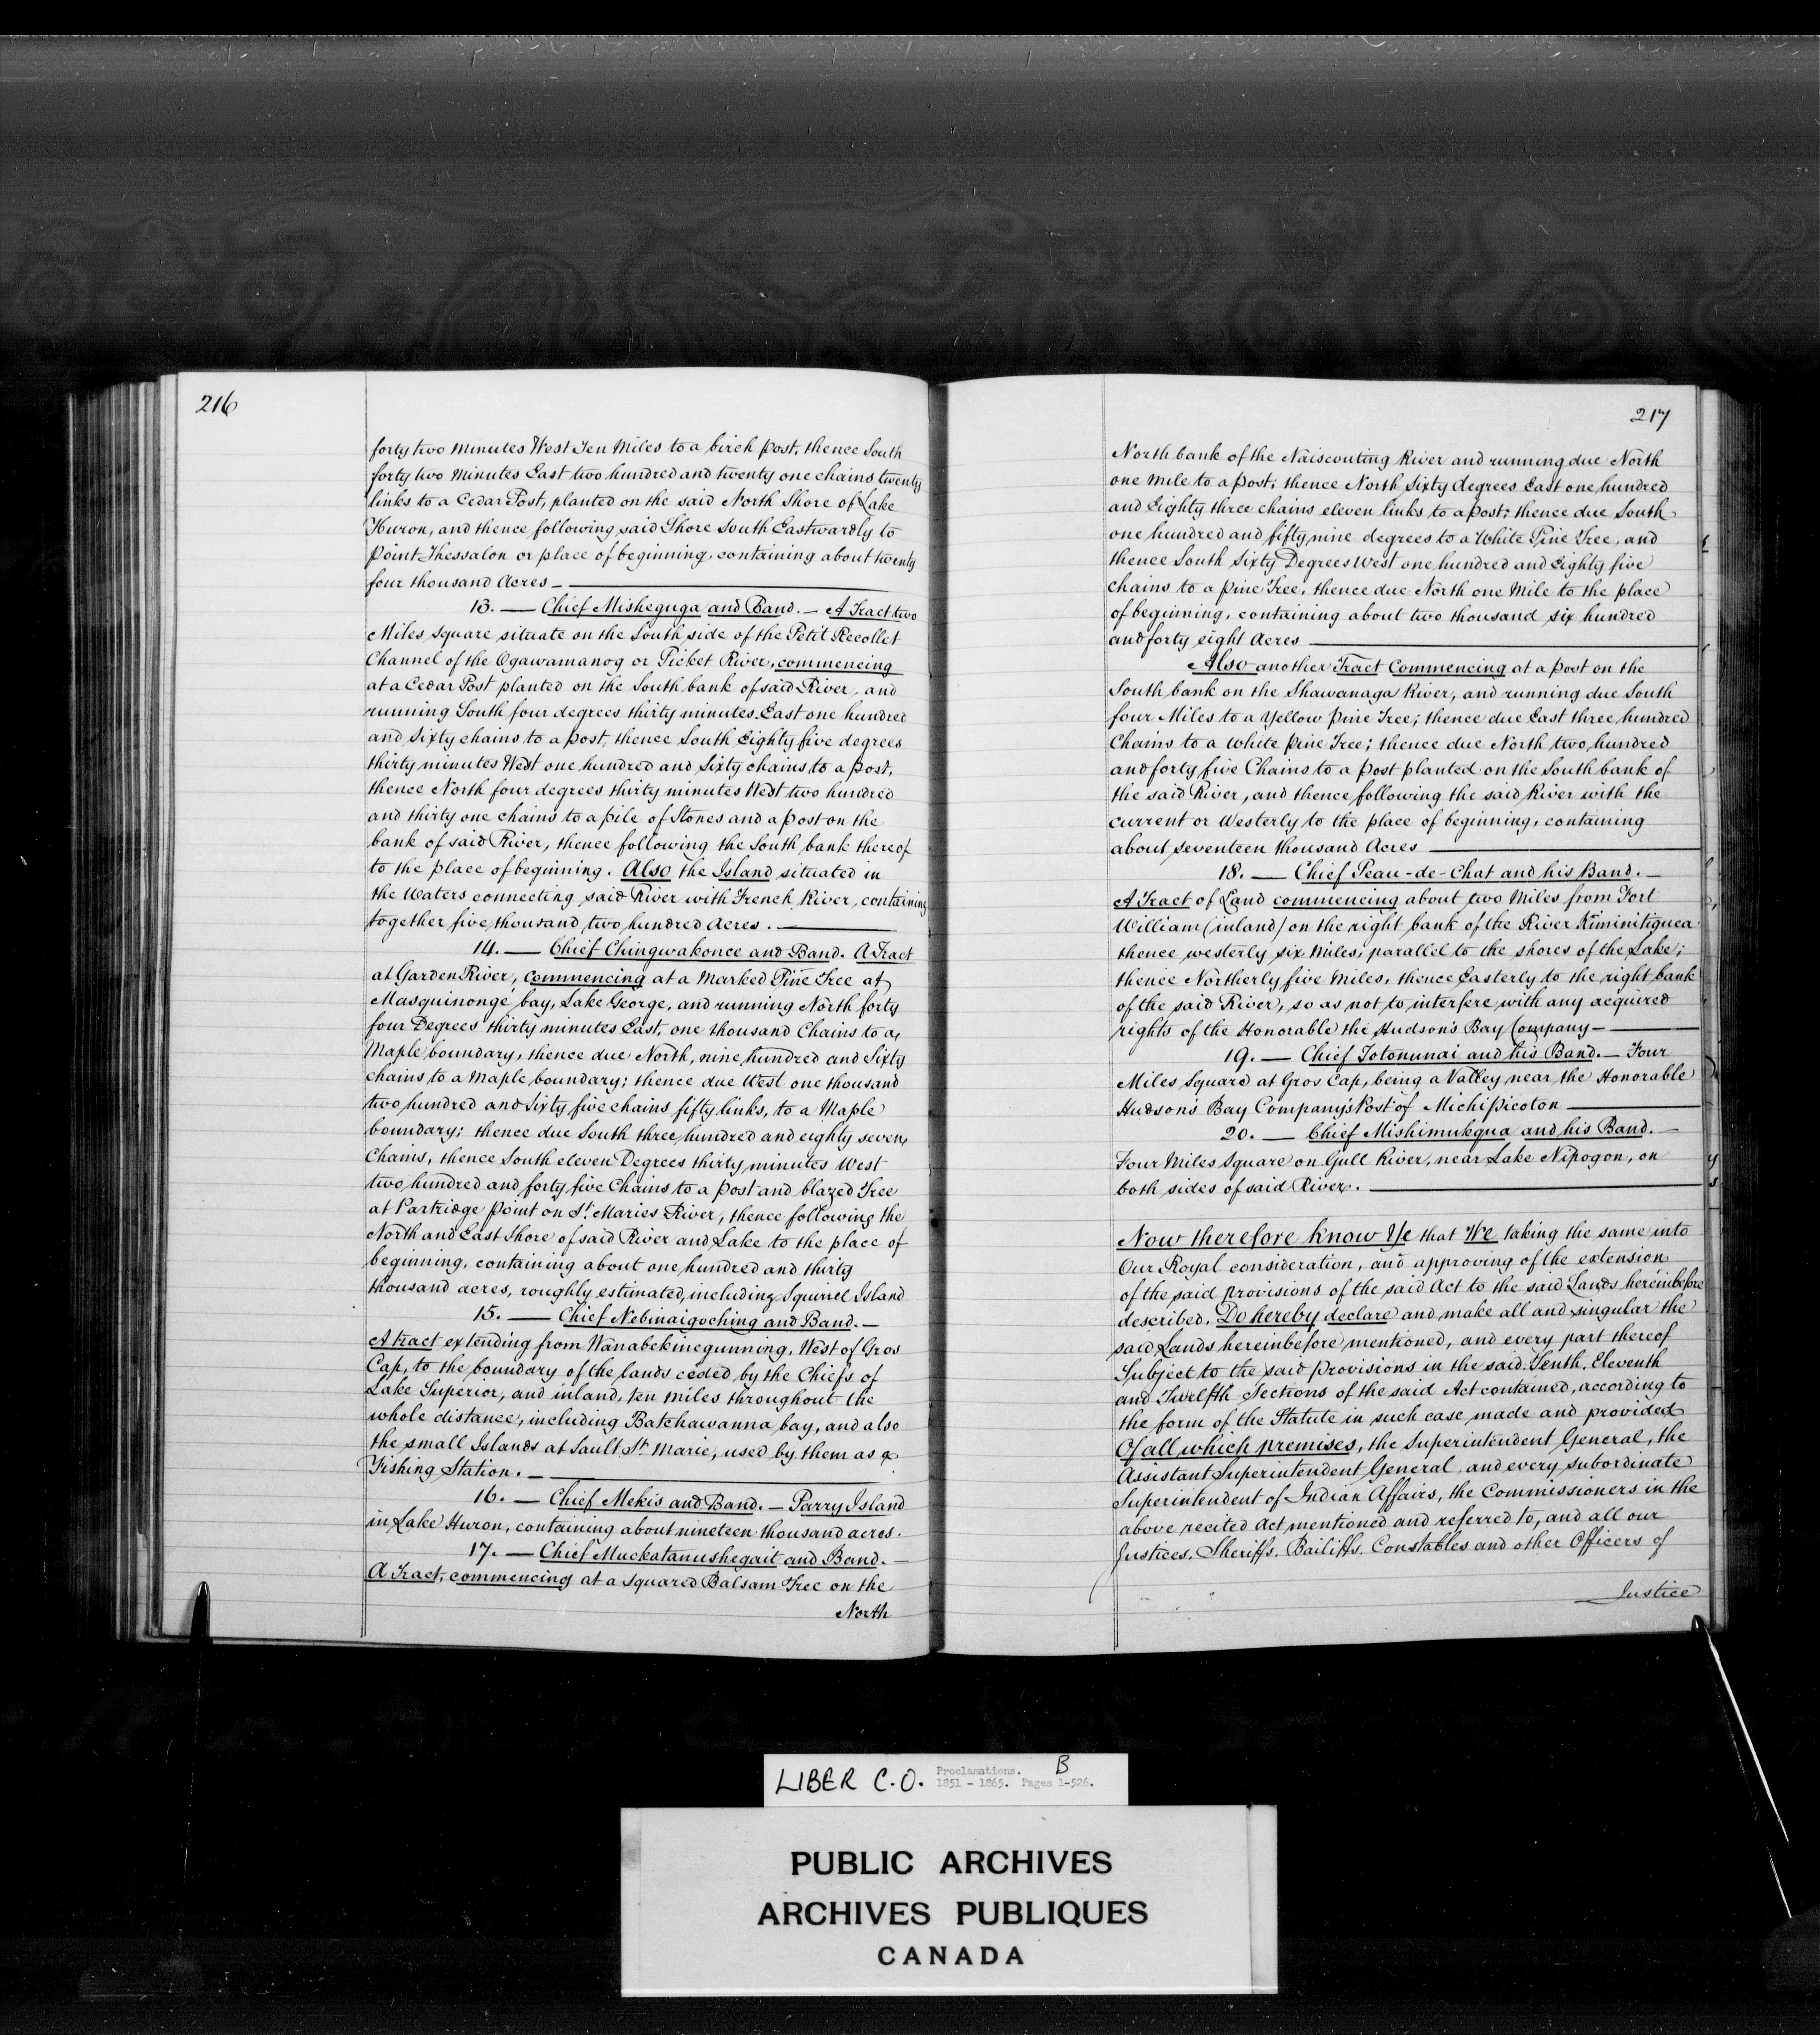 216
forty two minutes West Ten Miles to a birch post, thence South
forty two minutes East two hundred and twenty one chains twenty
links to a Cedar Post, planted on the said North Shore of Lake
Huron, and thence following said Shore South Eastwardly to
Point Thessalon or place of beginning, containing about twenty
four thousand Acres —
13. — Chief Misheguga and Band. — A Tract two
Miles square situate on the South side of the Petit Recollet
Channel of the Ogawamanog or Picket River, commencing
at a Cedar Post planted on the South bank of said River, and
running South four degrees thirty minutes East one hundred
and sixty chains to a post, thence South Eighty five degrees
thirty minutes West one hundred and Sixty chains to a post,
thence North four degrees thirty minutes West two hundred
and thirty one chains to a pile of Stones and a post on the
bank of said River, thence following the South bank thereof
to the place of beginning. Also the Island situated in
the Waters connecting said River with French River, containing
together five thousand two hundred Acres. —
14. — Chief Chingwakonce and Band. A Tract
at Garden River, commencing at a Marked Pine Tree at
Masquinonge bay, Lake George, and running North forty
four Degrees thirty minutes East, one thousand Chains to a
Maple boundary, thence due North, nine hundred and Sixty
chains to a Maple boundary; thence due West one thousand
two hundred and Sixty five chains fifty links, to a Maple
boundary; thence due South three hundred and eighty seven
Chains, thence South eleven Degrees thirty minutes West
two hundred and forty five Chains to a post and blazed Tree
at Partridge Point on St. Maries River, thence following the
North and East Shore of said River and Lake to the place of
beginning, containing about one hundred and thirty
thousand acres, roughly estimated, including Squirrel Island
15. — Chief Nebinaigoching and Band. —
A tract extending from Wanabekinegunning, West of Gros
Cap, to the boundary of the lands ceded by the Chiefs of
Lake Superior, and inland, ten miles throughout the
whole distance, including Batchawanna bay, and also
the small Islands at Sault St. Marie, used by them as a
Fishing Station. —
16. — Chief Mekis and Band. — Parry Island
in Lake Huron, containing about nineteen thousand acres.
17. — Chief Muckatamishegait and Band. —
A Tract, commencing at a squared Balsam Tree on the
North
217
North bank of the Naiscouting River and running due North
one mile to a post; thence North Sixty degrees East one hundred
and Eighty three chains eleven links to a post; thence due South
one hundred and fifty nine degrees to a White Pine Tree, and
thence South Sixty Degrees West one hundred and Eighty five
chains to a Pine Tree, thence due North one Mile to the place
of beginning, containing about two thousand six hundred
and forty eight Acres —
Also another Tract Commencing at a post on the
South bank on the Shawanaga River, and running due South
four Miles to a Yellow Pine Tree; thence due East three hundred
Chains to a White Pine Tree; thence due North two hundred
and forty five Chains to a post planted on the South bank of
the said River, and thence following the said River with the
current or Westerly to the place of beginning, containing
about seventeen thousand Acres —
18. — Chief Peau-de-Chat and his Band. —
A Tract of Land commencing about two Miles from Fort
William (inland) on the right bank of the River Kiminitiguea
thence westerly six Miles, parallel to the shores of the Lake;
thence Northerly five Miles, thence Easterly to the right bank
of the said River, so as not to interfere with any acquired
rights of the Honorable the Hudson's Bay Company —
19. — Chief Totonunai and his Band. — Four
Miles Square at Gros Cap, being a Valley near the Honorable
Hudson's Bay Company's Post of Michipicoton —
20. — Chief Mishimukqua and his Band. —
Four Miles Square on Gull River, near Lake Nipogon, on
both sides of said River. —
Now therefore know Ye that We taking the same into
Our Royal consideration, and approving of the extension
of the said provisions of the said Act to the said Lands hereinbefore
described, Do hereby declare and make all and singular the
said Lands hereinbefore mentioned, and every part thereof
Subject to the said provisions in the said Tenth, Eleventh
and Twelfth Sections of the said Act contained, according to
the form of the Statute in such case made and provided
Of all which premises, the Superintendent General, the
Assistant Superintendent General, and every subordinate
Superintendent of Indian Affairs, the Commissioners in the
above recited Act mentioned and referred to, and all our
Justices, Sheriffs, Bailiffs, Constables and other Officers of
Justice
LIBER C.O. Proclamations. B
1851 - 1865. Pages 1-526.
PUBLIC ARCHIVES
ARCHIVES PUBLIQUES
CANADA